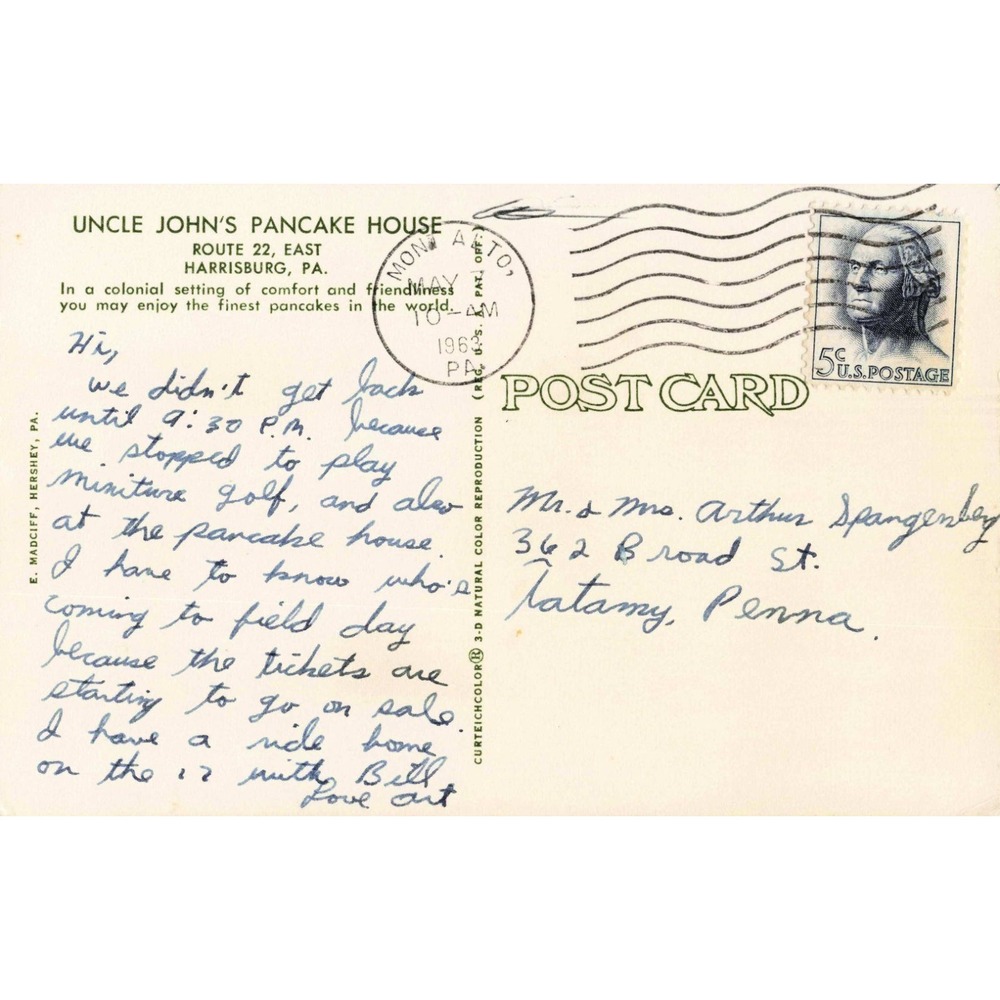 UNCLE JOHN'S PANCAKE HOUSE
ROUTE 22, EAST
HARRISBURG, PA.
In a colonial setting of comfort and friendliness
you may enjoy the finest pancakes in the world.
Hi,
we didn't get back
until 9:30 P.M. because
we stopped to play
miniture golf, and also
at the pancake house.
I have to know who's
coming to field day
because the tickets are
starting to go on sale.
I have a ride home
on the 17 with Bill
Love Art
E. MADCIFF, HERSHEY, PA.
CURTEICHCOLOR® 3-D NATURAL COLOR REPRODUCTION (REG. U. S. A. PAT. OFF.)
MONT ALTO,
MAY 7
10-AM
1963
PA
5c
U.S. POSTAGE
POST CARD
Mr. & Mrs. Arthur Spangenberg
362 Broad St.
Tatamy, Penna.